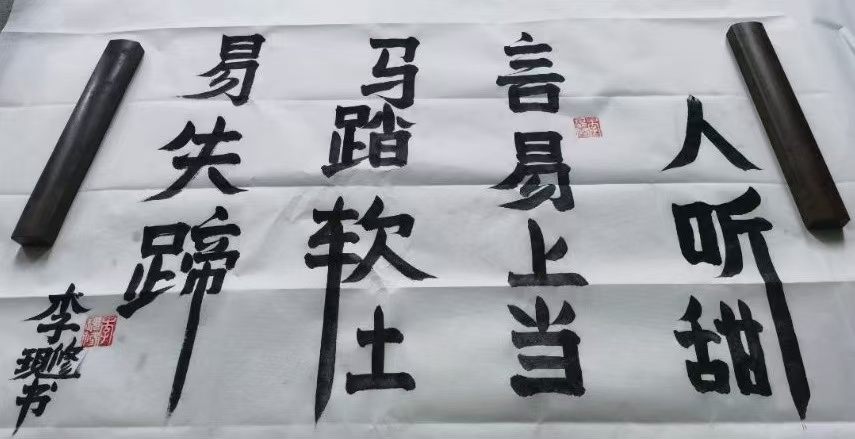 人听甜
言易上当
马踏软土
易失蹄
李修现书